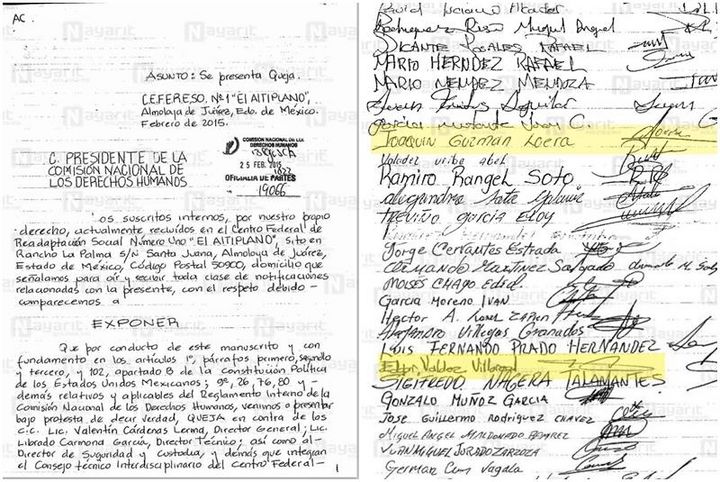 AC
ASUNTO: Se presenta Queja.
CEFERESO. Nº1 "El AlTIPLANO",
Almoloya de Juárez, Edo. de México.
Febrero de 2015.
COMISION NACIONAL DE LOS
DERECHOS HUMANOS
25 FEB. 2015
OFICIALIA DE PARTES
19066
C. PRESIDENTE DE LA
COMISIÓN NACIONAL DE
LOS DERECHOS HUMANOS
Los suscritos internos, por nuestro propio
derecho, actualmente recluídos en el Centro Federal de
Readaptación Social Número Uno "El AlTIPLANO", sito en
Rancho La Palma S/N Santa Juana, Almoloya de Juárez,
Estado de México, Código Postal 50900, domicilio que
señalamos para oir y recibir toda clase de notificaciones
relacionadas con la presente, con el respeto debido-
comparecemos a
EXPONER
Que por conducto de este manuscrito y con
fundamento en los artículos 1º, párrafos primero, segundo
y tercero, y 102, apartado B de la Constitución Política
de los Estados Unidos Mexicanos; 9º, 26, 76, 80 y -
demás relativos y aplicables del Reglamento Interno de la
Comisión Nacional de los Derechos Humanos, venimos a presentar
bajo protesta de decir verdad, QUEJA en contra de los
C.C. Lic. Valentín Cárdenas Lerma, Director General; Lic.
Librado Carmona García, Director Técnico; así como al-
Director de Seguridad y Custodia, y demás que integran
el Consejo técnico Interdisciplinario del Centro Federal-
1
Rodriguez Miguel Angel
DICANTE ROSALES RAFAEL
MARIO HERNDEZ RAFAEL
MARIO MENDEZ MENDOZA
JOAQUIN GUZMAN LOERA
Valadez uribe abel
Ramiro Rangel Soto
TREVIÑO GARCIA ELOY
Jorge Cervantes Estrada
ARMANDO MARTINEZ Salgado
MOISES CHAYO Edid.
GARCIA MORENO IVAN
Hector A.
Alejandro Villegas Granados
LUIS FERNANDO PRADO HERNANDEZ
Edgar Valdez Villarreal
SIGIFREDO NAGERA TALAMANTES
GONZALO MUÑOZ GARCIA
JOSE GUILLERMO RODRIGUEZ CHAVEZ
MIGUEL ANGEL MALDONADO RAMIREZ
JUAN MIGUEL JURADO ZARROZA
German Cen Vagala
Nayarit